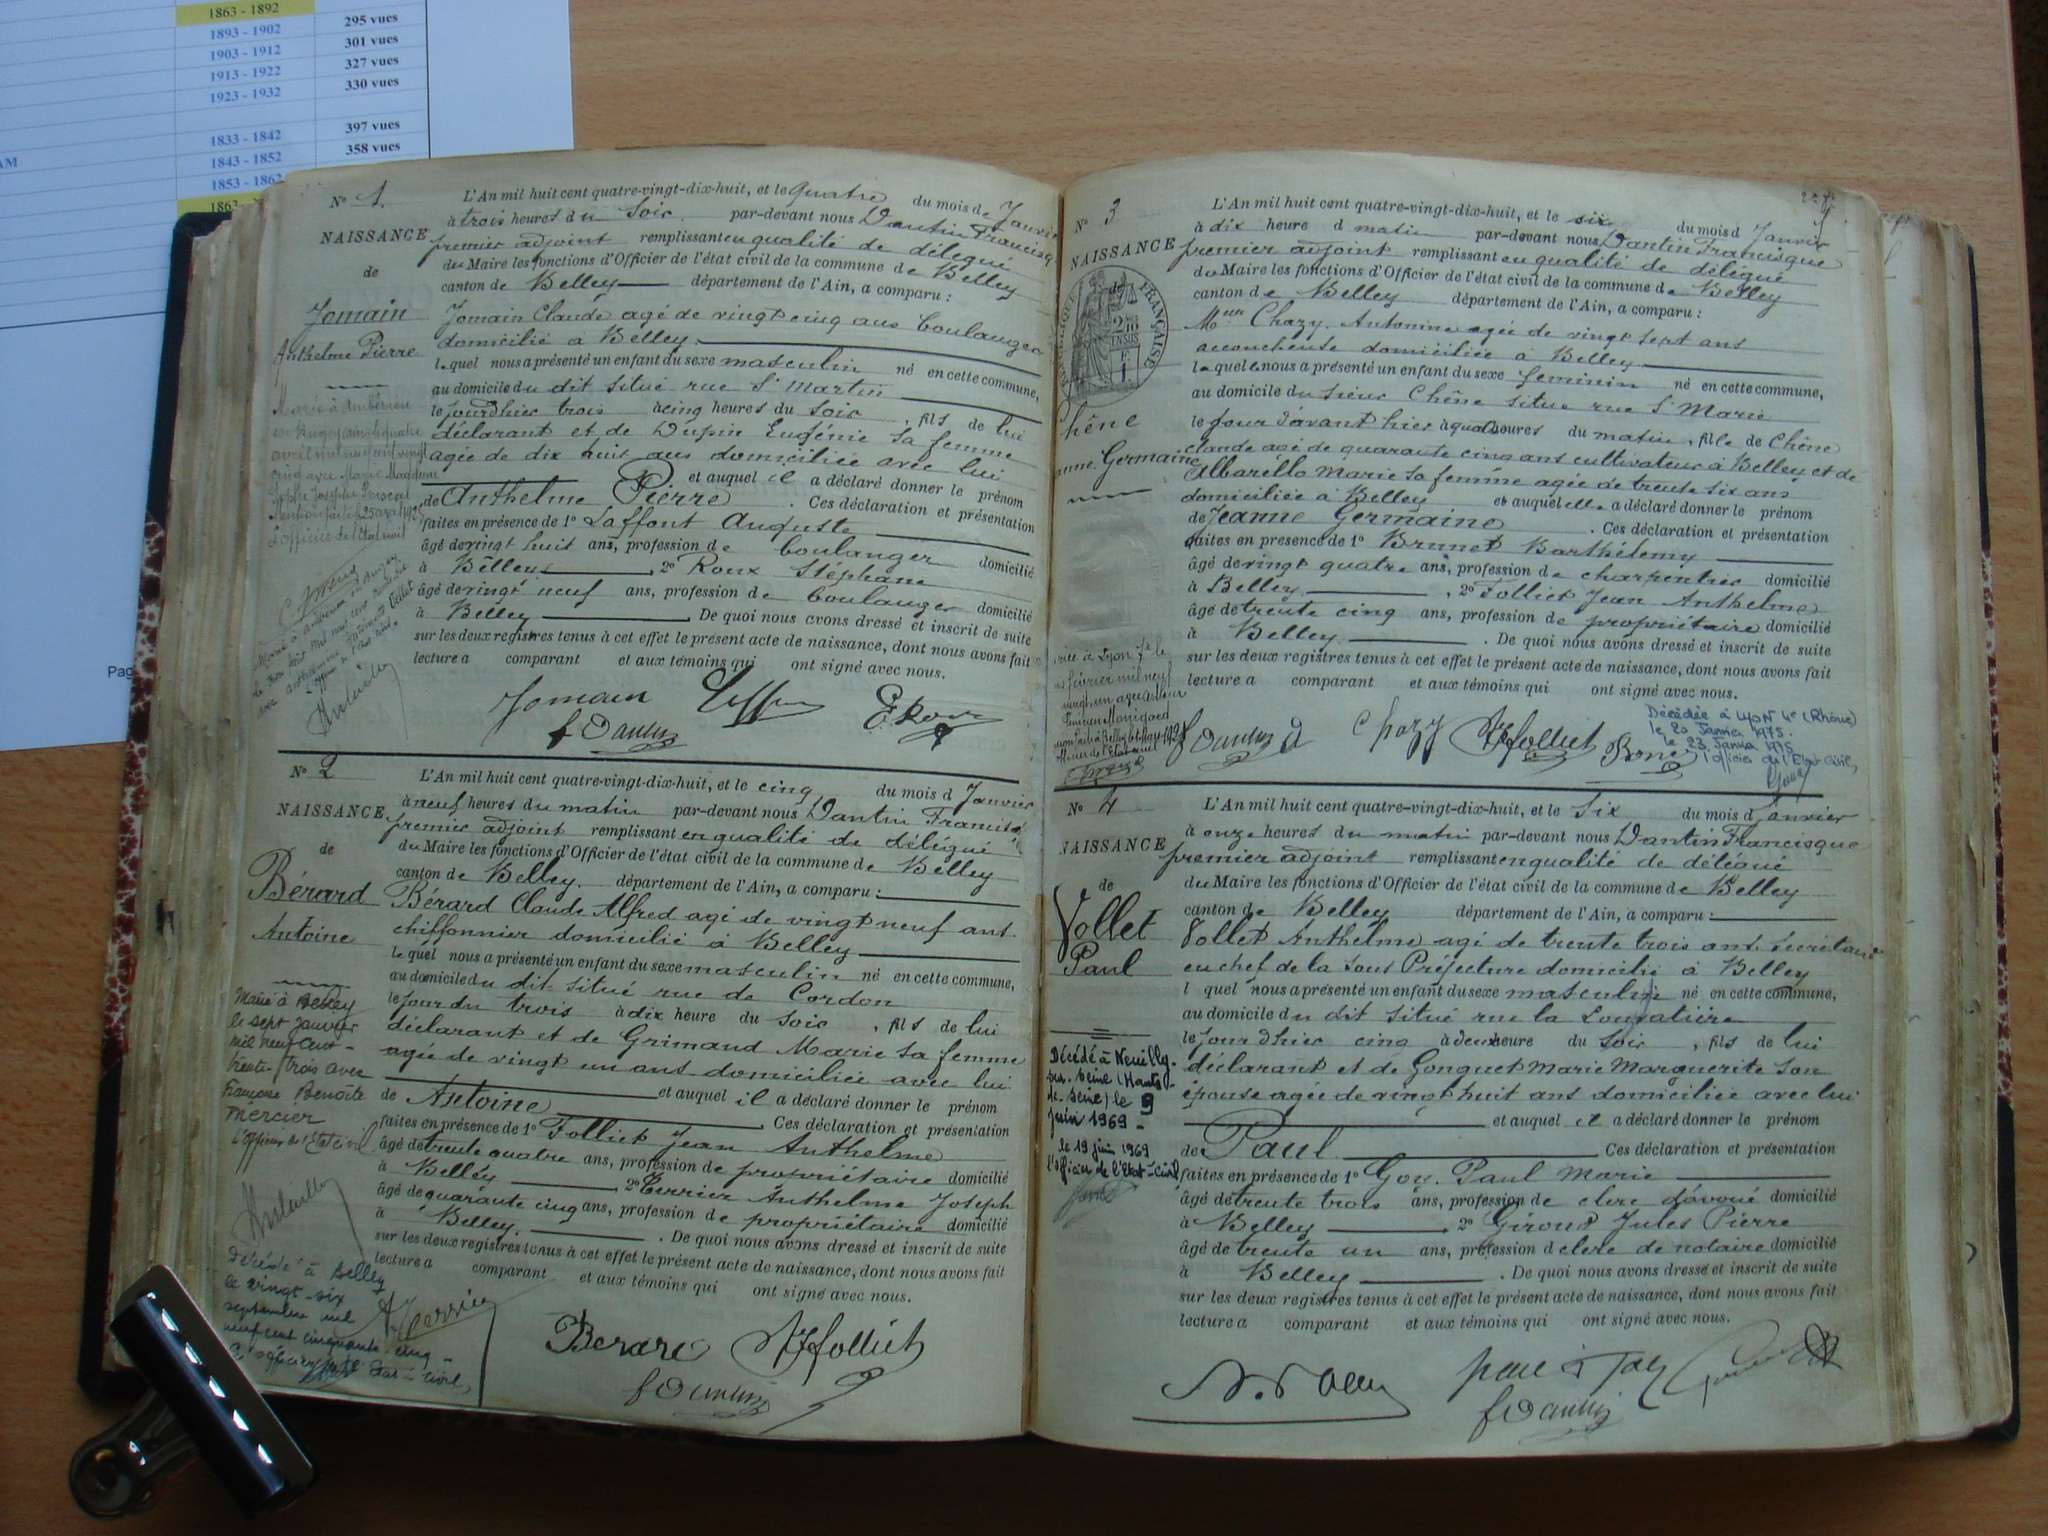 1863 - 1892
1893 - 1902 295 vues
1903 - 1912 301 vues
1913 - 1922 327 vues
1923 - 1932 330 vues
1833 - 1842 397 vues
1843 - 1852 358 vues
1853 - 1862
AM
1863
Pag
N° 1.
NAISSANCE
de
Jomain
Anthelme Pierre
Marié à Ambérieu
en Bugey
L'An mil huit cent quatre-vingt-dix-huit, et le quatre du mois de Janvier
à trois heures du soir par-devant nous Dantin Francisque
premier adjoint remplissant en qualité de délégué
du Maire les fonctions d'Officier de l'état civil de la commune de Belley
canton de Belley département de l'Ain, a comparu :
Jomain Claude agé de vingt cinq ans boulanger
domicilié à Belley
lequel nous a présenté un enfant du sexe masculin né en cette commune,
au domicile du dit situé rue St Martin
le jour d'hier trois à cinq heures du soir, fils de lui
déclarant et de Dupin Eugénie sa femme
agée de dix huit ans domiciliée avec lui
et auquel il a déclaré donner le prénom
de Anthelme Pierre. Ces déclaration et présentation
faites en présence de 1° Laffont Auguste
âgé de vingt huit ans, profession de boulanger domicilié
à Belley 2° Roux Stéphane
âgé de vingt neuf ans, profession de boulanger domicilié
à Belley. De quoi nous avons dressé et inscrit de suite
sur les deux registres tenus à cet effet le présent acte de naissance, dont nous avons fait
lecture a comparant et aux témoins qui ont signé avec nous.
Jomain
f Dantin
N° 2
NAISSANCE
de
Bérard
Antoine
Marié à Belley
le sept Janvier
mil neuf cent
trente-trois avec
Françoise Benoîte
Mercier
l'Officier de l'Etat civil
Décédé à Belley
le vingt-six
septembre mil
neuf cent cinquante-cinq
L'officier de l'Etat-civil,
L'An mil huit cent quatre-vingt-dix-huit, et le cinq du mois d Janvier
à neuf heures du matin par-devant nous Dantin Francisque
premier adjoint remplissant en qualité de délégué
du Maire les fonctions d'Officier de l'état civil de la commune de Belley
canton de Belley. département de l'Ain, a comparu :
Bérard Claude Alfred agé de vingt neuf ans.
chiffonnier domicilié à Belley
lequel nous a présenté un enfant du sexe masculin né en cette commune,
au domicile du dit situé rue de Cordon
le jour du trois à dix heure du soir, fils de lui
déclarant et de Grimaud Marie sa femme
agée de vingt un ans domiciliée avec lui
et auquel il a déclaré donner le prénom
de Antoine. Ces déclaration et présentation
faites en présence de 1° Folliet Jean Anthelme
âgé de trente quatre ans, profession de propriétaire domicilié
à Belley 2° Terrier Anthelme Joseph
âgé de quarante cinq ans, profession de propriétaire domicilié
à Belley. De quoi nous avons dressé et inscrit de suite
sur les deux registres tenus à cet effet le présent acte de naissance, dont nous avons fait
lecture a comparant et aux témoins qui ont signé avec nous.
Berard Folliet
f Dantin
N° 3
NAISSANCE
FRANÇAISE
Chêne
Jeanne Germaine
L'An mil huit cent quatre-vingt-dix-huit, et le six du mois d Janvier
à dix heure d matin par-devant nous Dantin Francisque
premier adjoint remplissant en qualité de délégué
du Maire les fonctions d'Officier de l'état civil de la commune de Belley
canton de Belley département de l'Ain, a comparu :
Chazy Antonine agée de vingt sept ans
accoucheuse domiciliée à Belley
laquelle nous a présenté un enfant du sexe féminin né en cette commune,
au domicile du sieur Chêne situé rue St Marie
le jour d'avant hier à quatre heures du matin, fille de Chêne
Claude agé de quarante cinq ans cultivateur à Belley et de
Albarello Marie sa femme agée de trente six ans
domiciliée à Belley et auquel elle a déclaré donner le prénom
de Jeanne Germaine. Ces déclaration et présentation
faites en présence de 1° Brunet Barthélemy
âgé de vingt quatre ans, profession de charpentier domicilié
à Belley, 2° Folliet Jean Anthelme
âgé de trente cinq ans, profession de propriétaire domicilié
à Belley. De quoi nous avons dressé et inscrit de suite
sur les deux registres tenus à cet effet le présent acte de naissance, dont nous avons fait
lecture a comparant et aux témoins qui ont signé avec nous.
f Dantin Chazy Folliet
Décédée à LYON 4e (Rhône)
le 20 Janvier 1975.
le 23 Janvier 1975
l'officier de l'Etat Civil,
N° 4
NAISSANCE
de
Vollet
Paul
Décédé à Neuilly-
sur-Seine (Hauts-
de-Seine) le 9
Juin 1969 -
le 19 juin 1969
l'officier de l'Etat-Civil
L'An mil huit cent quatre-vingt-dix-huit, et le six du mois d Janvier
à onze heures du matin par-devant nous Dantin Francisque
premier adjoint remplissant en qualité de délégué
du Maire les fonctions d'Officier de l'état civil de la commune de Belley
canton de Belley département de l'Ain, a comparu :
Vollet Anthelme agé de trente trois ans secrétaire
en chef de la Sous Préfecture domicilié à Belley
l quel nous a présenté un enfant du sexe masculin né en cette commune,
au domicile du dit situé rue la
le jour d'hier cinq à deux heure du soir, fils de lui
déclarant et de Gonguet Marie Marguerite son
épouse agée de vingt huit ans domiciliée avec lui
et auquel il a déclaré donner le prénom
de Paul Ces déclaration et présentation
faites en présence de 1° Goy. Paul Marie
âgé de trente trois ans, profession de clerc d'avoué domicilié
à Belley 2° Giroud Jules Pierre
âgé de trente un ans, profession d clerc de notaire domicilié
à Belley. De quoi nous avons dressé et inscrit de suite
sur les deux registres tenus à cet effet le présent acte de naissance, dont nous avons fait
lecture a comparant et aux témoins qui ont signé avec nous.
f Dantin